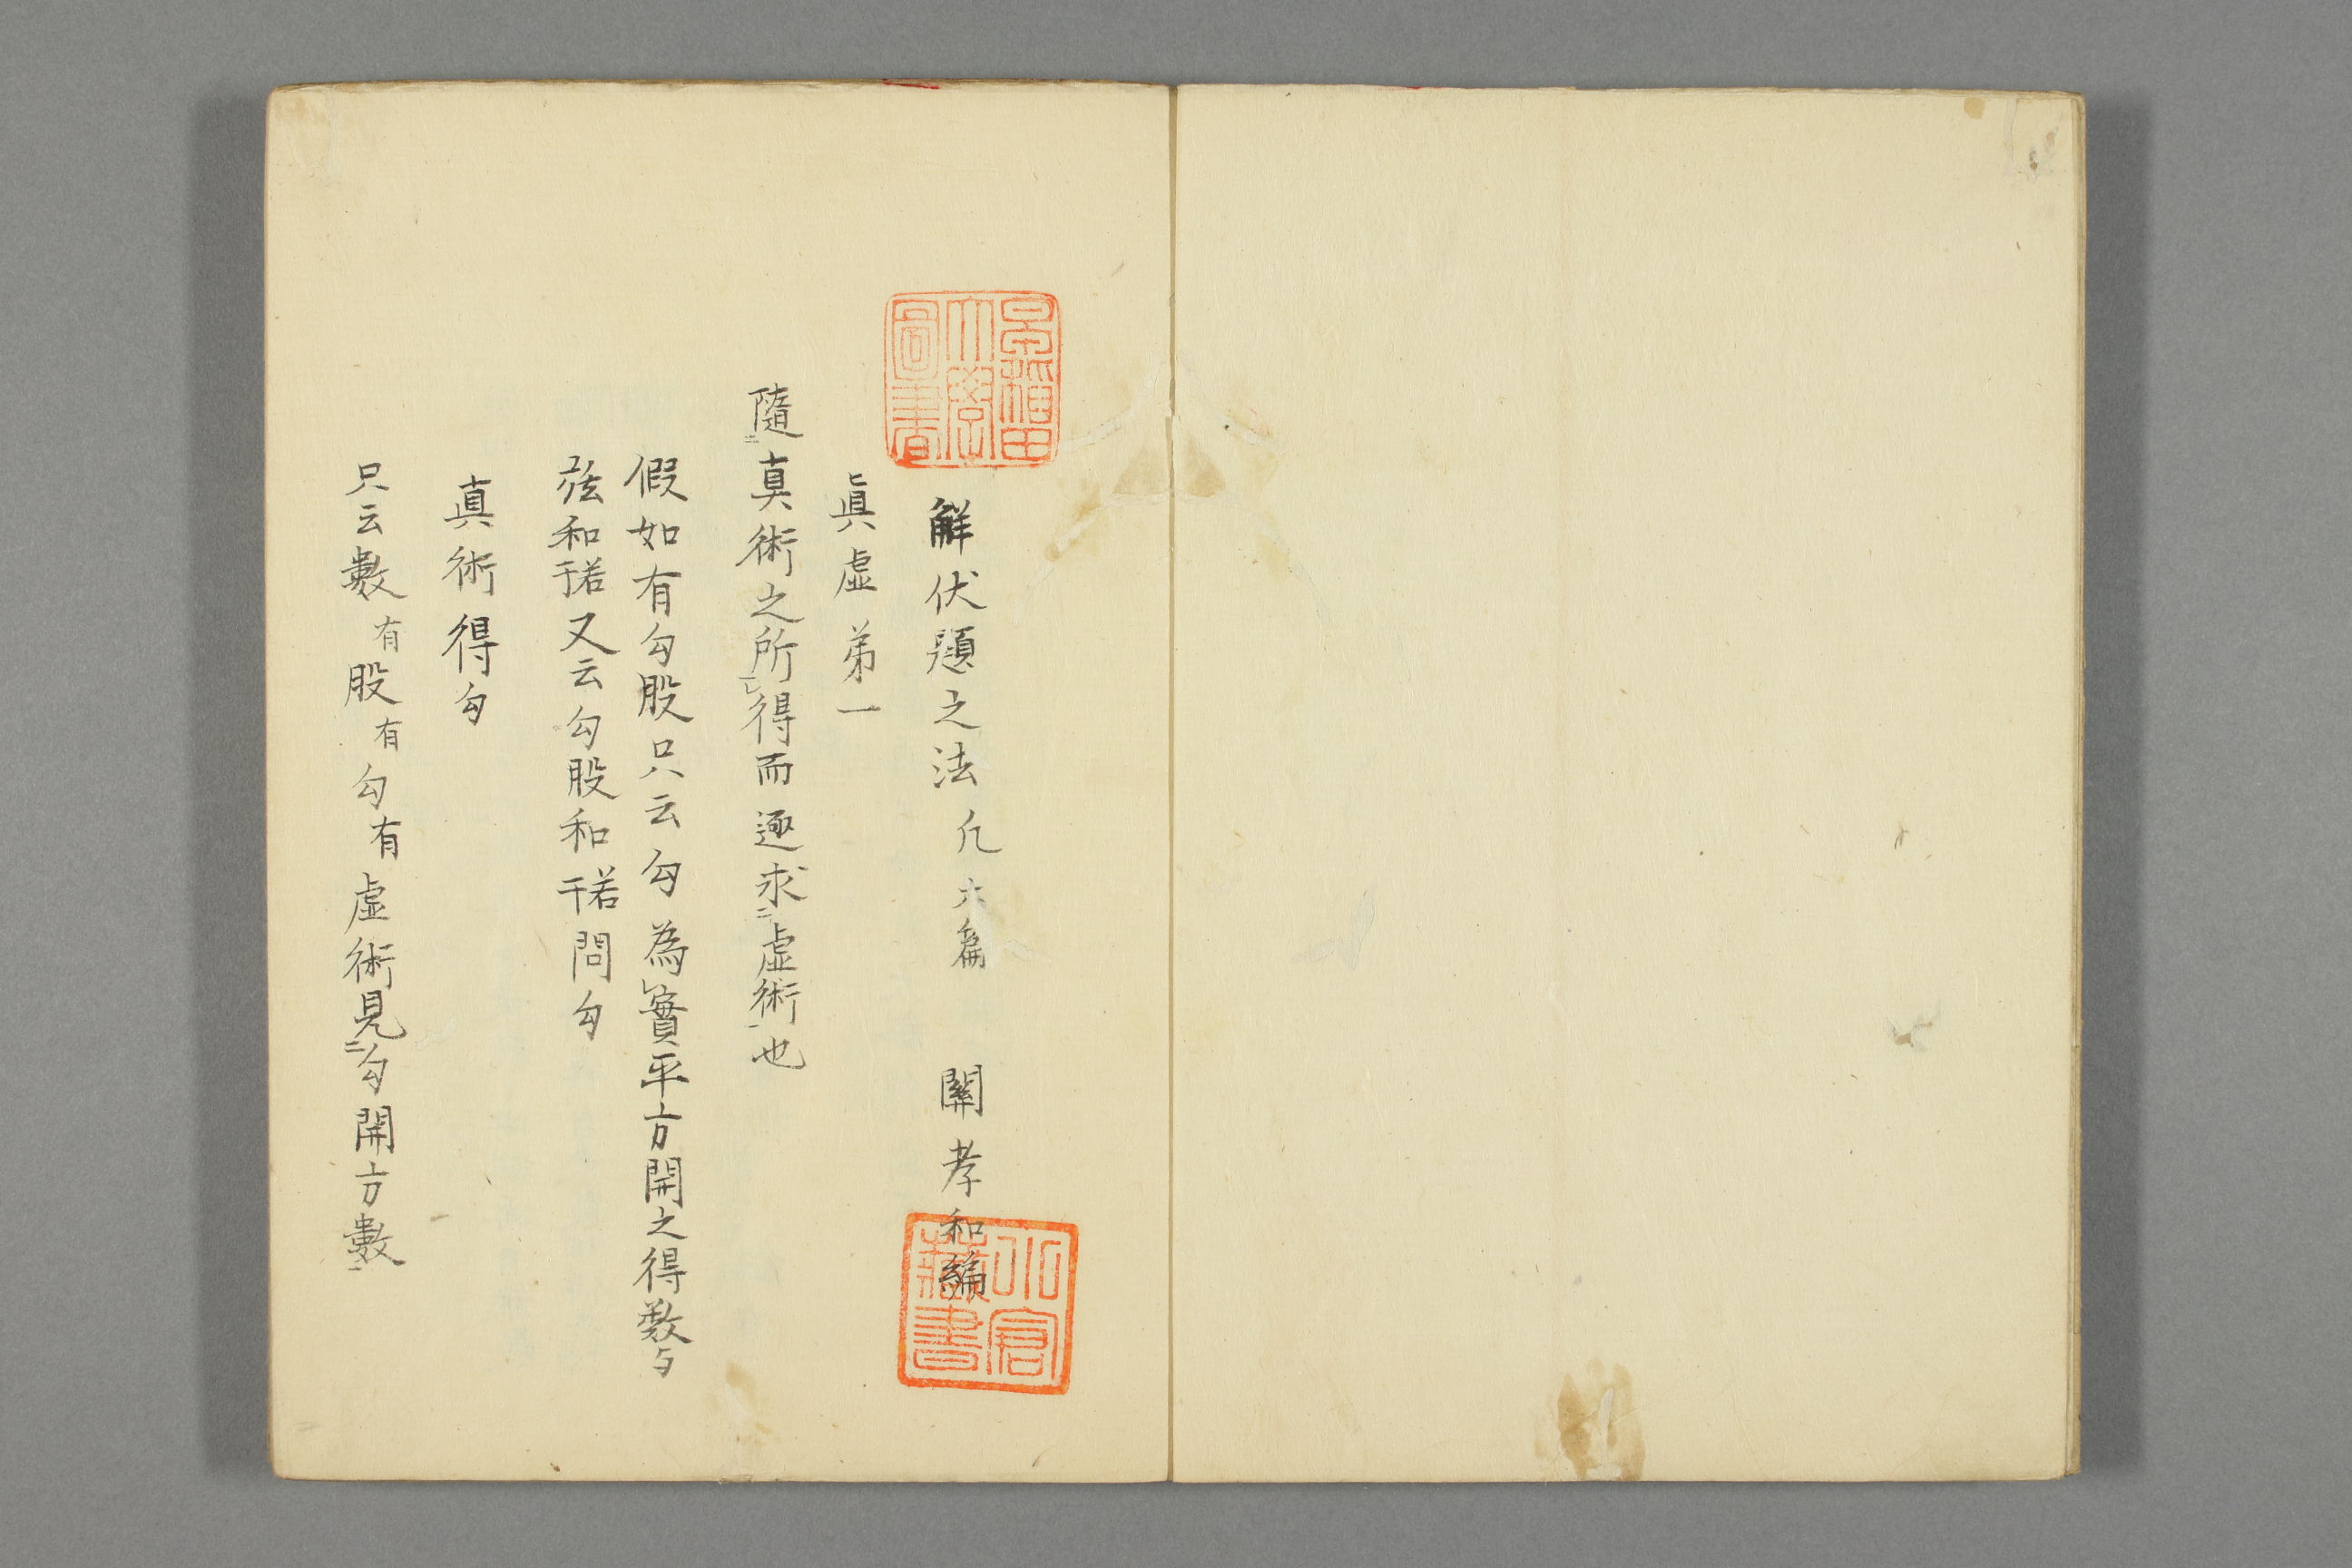 早稲田大學圖書
解伏題之法 凡六篇 關孝和編
小倉藏書
眞虚第一
隨二眞術之所レ得而逐求二虚術一也
假如有勾股只云勾為レ實平方開之得数与
弦和若干又云勾股和若干問勾
真術得勾
只云數有股有勾有虚術見二勾開方數一